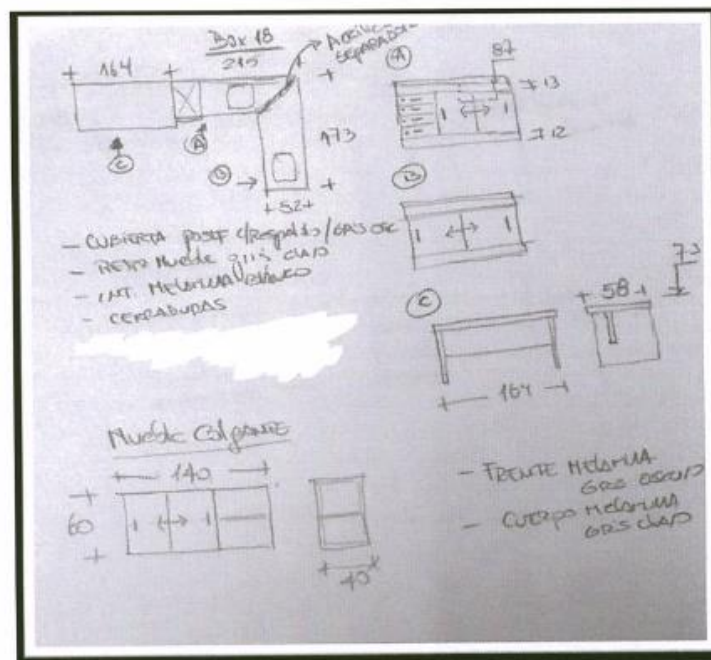 Box 18
215
164
ACRILICO
SEPARADOR
A
C
B
173
52
87
13
12
A
B
- CUBIERTA POSTF C/RESPALDO/GRIS OSC
- RESTO MUEBLE gris CLARO
- INT. MELAMINA BLANCO
- CERRADURAS
C
164
58
73
MUEBLE COLGANTE
140
60
40
- FRENTE MELAMINA
GRIS OSCURO
- CUERPO MELAMINA
GRIS CLARO